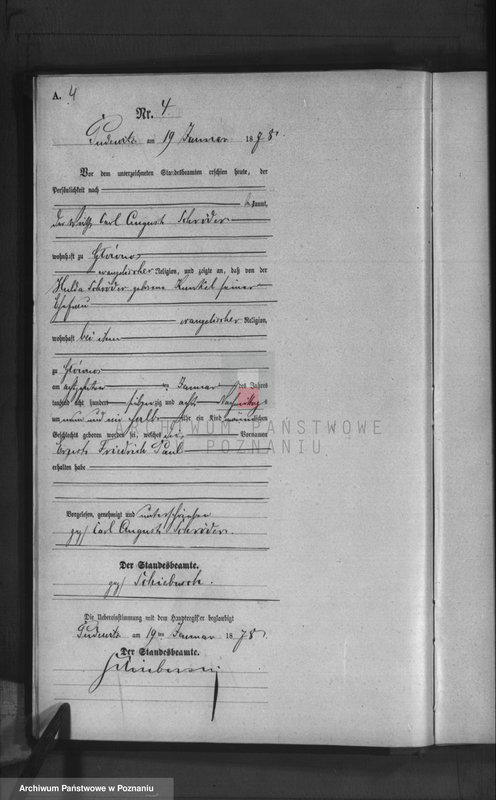 A. 4
Nr. 4
Pudewitz am 19 Januar 1878.
Vor dem unterzeichneten Standesbeamten erschien heute, der
Persönlichkeit nach
kannt,
der Wirth Carl August Schröder
wohnhaft zu Głowno
evangelischer Religion, und zeigte an, daß von der
Hulda Schröder geborene Kunkel seiner
Ehefrau
evangelischer Religion,
wohnhaft bei ihm
zu Głowno
am achtzehnten Januar des Jahres
tausend acht hundert siebenzig und acht Nachmittags
um neun und ein halb Uhr ein Kind männlichen
Geschlechts geboren worden sei, welches die Vornamen
Ernst Friedrich Paul
erhalten habe
Vorgelesen, genehmigt und unterschrieben
gez. Carl August Schröder.
Der Standesbeamte.
gez.
Die Uebereinstimmung mit dem Hauptregister beglaubigt
Pudewitz am 19ten Januar 1878.
Der Standesbeamte.
ARCHIWUM PAŃSTWOWE
POZNANIU
Archiwum Państwowe w Poznaniu